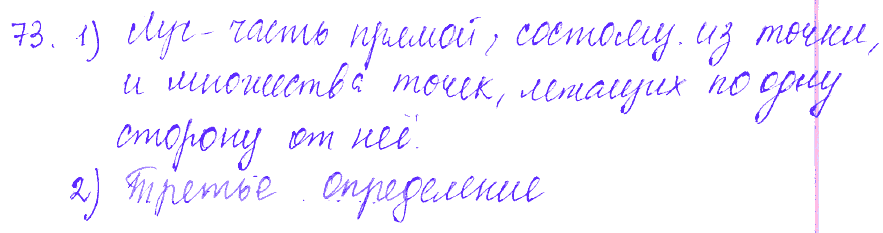 73. 1) Луч - часть прямой, состоящ. из точки,
и множества точек, лежащих по одну
сторону от неё.
2) Третье определение